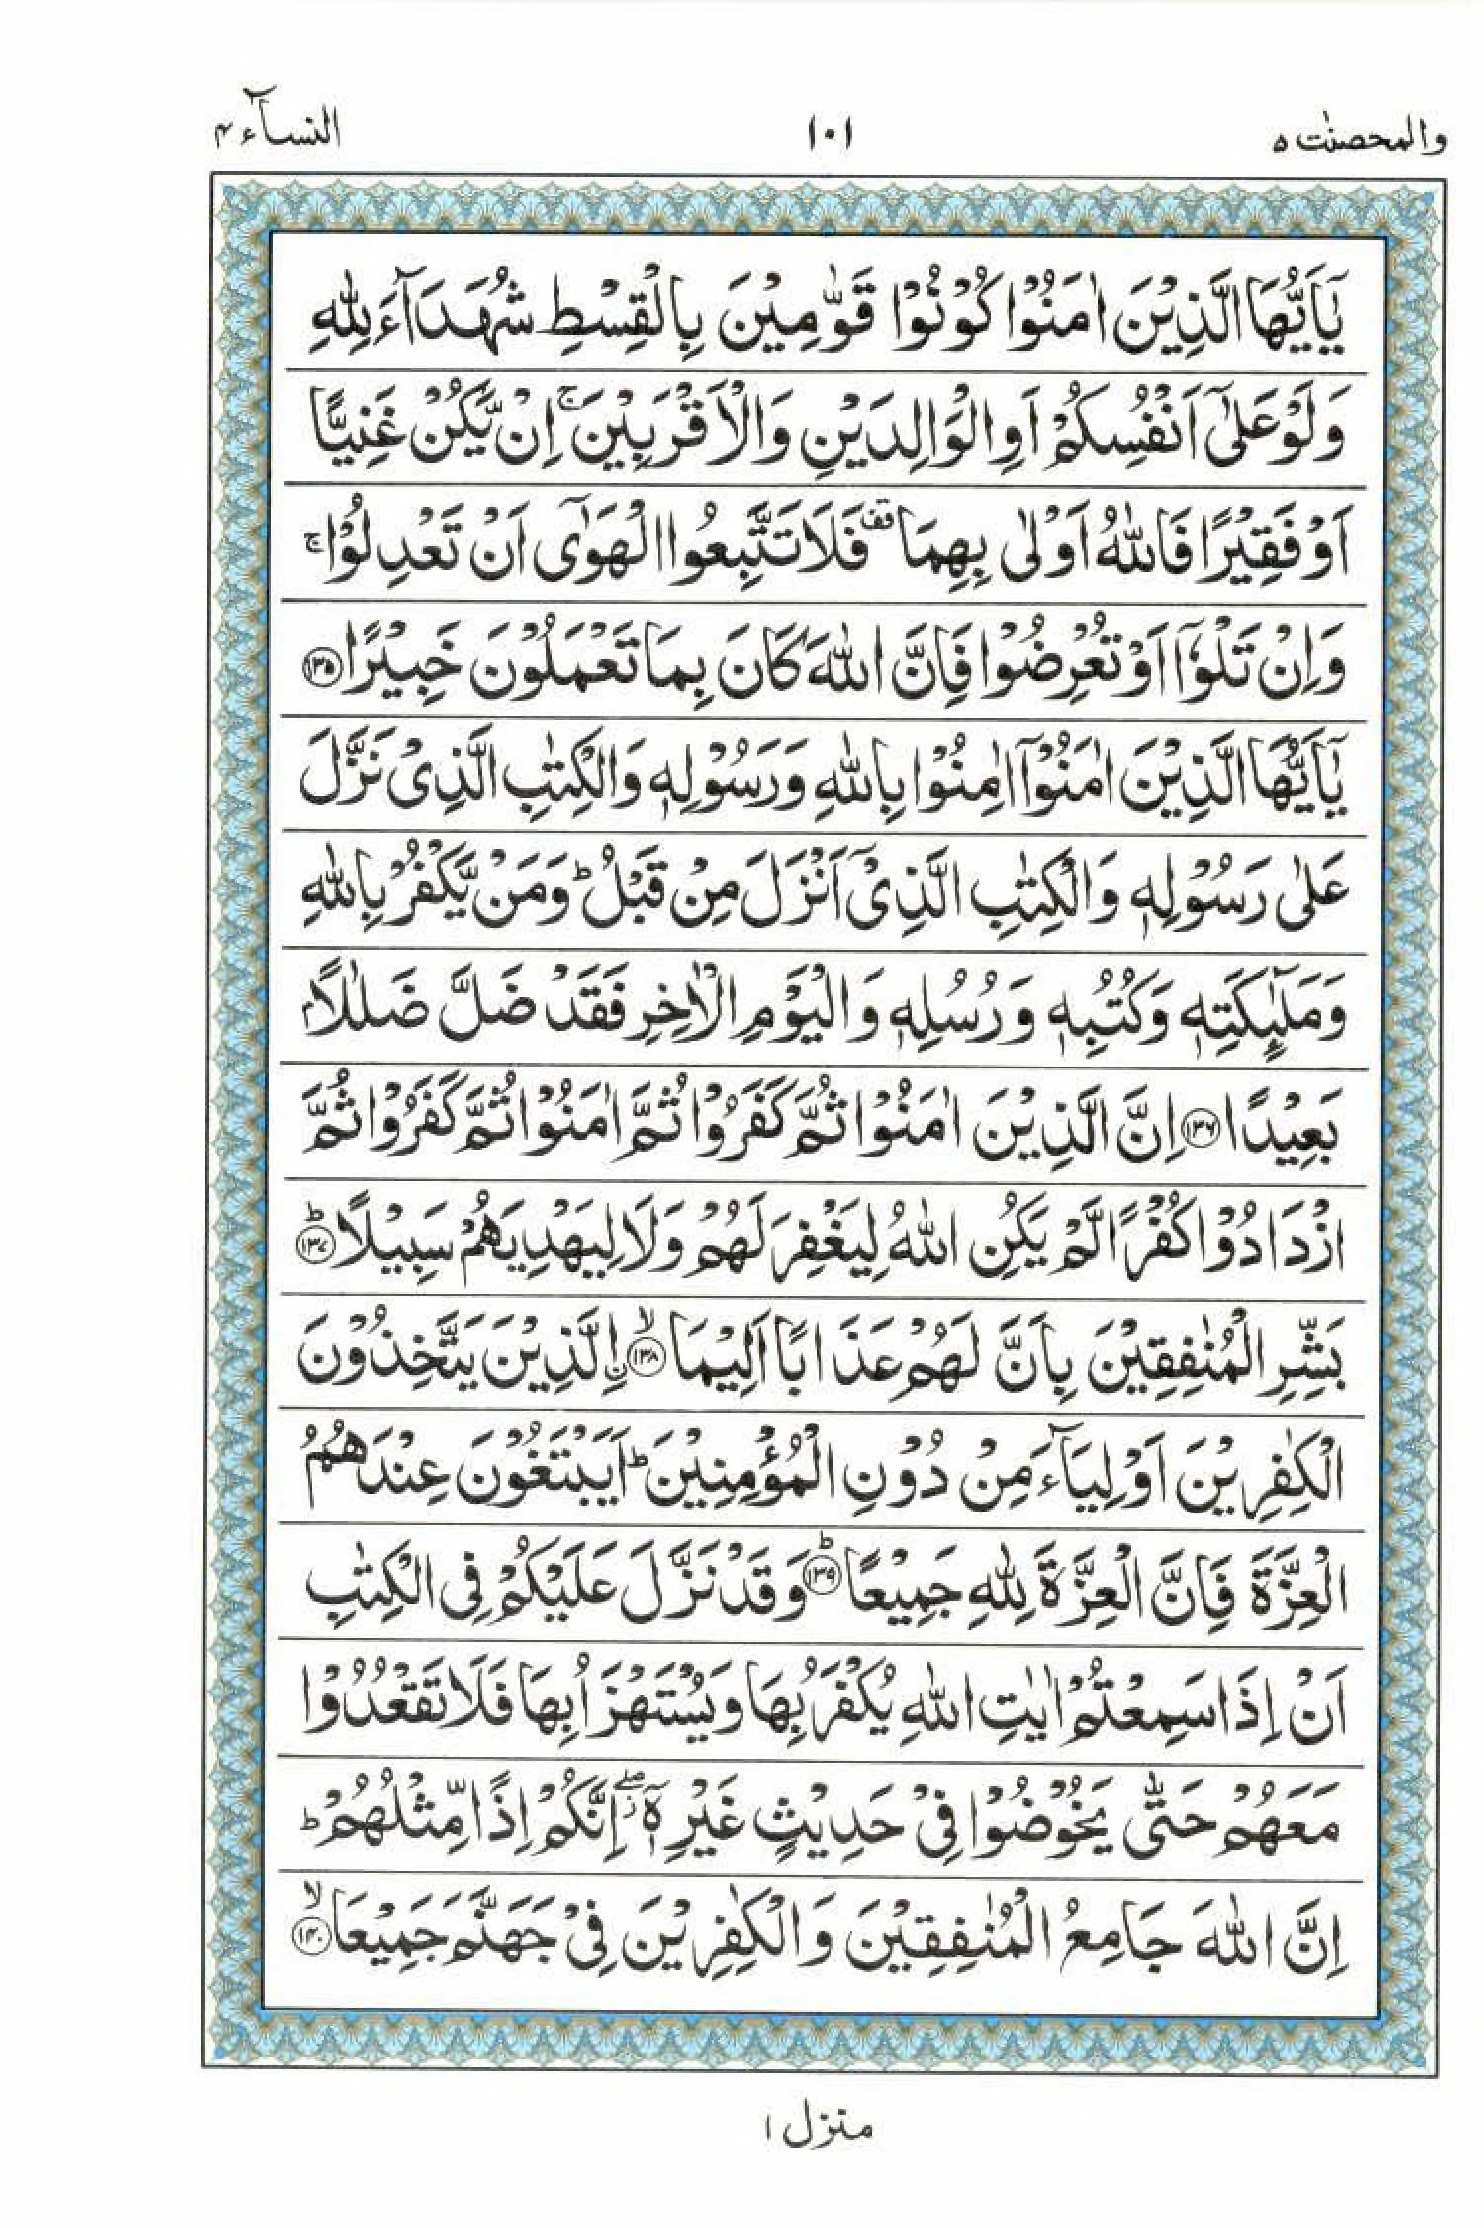 والمحصنٰت ۵ ۱۰۱ النسآء ۴
يٰۤاَيُّهَا الَّذِيْنَ اٰمَنُوْا كُوْنُوْا قَوّٰمِيْنَ بِالْقِسْطِ شُهَدَآءَ لِلّٰهِ
وَلَوْ عَلٰۤى اَنْفُسِكُمْ اَوِ الْوَالِدَيْنِ وَالْاَقْرَبِيْنَ ۚ اِنْ يَّكُنْ غَنِيًّا
اَوْ فَقِيْرًا فَاللّٰهُ اَوْلٰى بِهِمَا ۫ فَلَا تَتَّبِعُوا الْهَوٰۤى اَنْ تَعْدِلُوْا ۚ
وَاِنْ تَلْوٗۤا اَوْ تُعْرِضُوْا فَاِنَّ اللّٰهَ كَانَ بِمَا تَعْمَلُوْنَ خَبِيْرًا ﴿۱۳۵﴾
يٰۤاَيُّهَا الَّذِيْنَ اٰمَنُوْۤا اٰمِنُوْا بِاللّٰهِ وَرَسُوْلِهٖ وَالْكِتٰبِ الَّذِىْ نَزَّلَ
عَلٰى رَسُوْلِهٖ وَالْكِتٰبِ الَّذِىْۤ اَنْزَلَ مِنْ قَبْلُ ؕ وَمَنْ يَّكْفُرْ بِاللّٰهِ
وَمَلٰٓئِكَتِهٖ وَكُتُبِهٖ وَرُسُلِهٖ وَالْيَوْمِ الْاٰخِرِ فَقَدْ ضَلَّ ضَلٰلًاۢ
بَعِيْدًا ﴿۱۳۶﴾ اِنَّ الَّذِيْنَ اٰمَنُوْا ثُمَّ كَفَرُوْا ثُمَّ اٰمَنُوْا ثُمَّ كَفَرُوْا ثُمَّ
ازْدَادُوْا كُفْرًا لَّمْ يَكُنِ اللّٰهُ لِيَغْفِرَ لَهُمْ وَلَا لِيَهْدِيَهُمْ سَبِيْلًا ؕ﴿۱۳۷﴾
بَشِّرِ الْمُنٰفِقِيْنَ بِاَنَّ لَهُمْ عَذَابًا اَلِيْمَا ۙ﴿۱۳۸﴾ ۨالَّذِيْنَ يَتَّخِذُوْنَ
الْكٰفِرِيْنَ اَوْلِيَآءَ مِنْ دُوْنِ الْمُؤْمِنِيْنَ ؕ اَيَبْتَغُوْنَ عِنْدَهُمُ
الْعِزَّةَ فَاِنَّ الْعِزَّةَ لِلّٰهِ جَمِيْعًا ؕ﴿۱۳۹﴾ وَقَدْ نَزَّلَ عَلَيْكُمْ فِى الْكِتٰبِ
اَنْ اِذَا سَمِعْتُمْ اٰيٰتِ اللّٰهِ يُكْفَرُ بِهَا وَيُسْتَهْزَاُ بِهَا فَلَا تَقْعُدُوْا
مَعَهُمْ حَتّٰى يَخُوْضُوْا فِىْ حَدِيْثٍ غَيْرِهٖۤ ۖ اِنَّكُمْ اِذًا مِّثْلُهُمْ ؕ
اِنَّ اللّٰهَ جَامِعُ الْمُنٰفِقِيْنَ وَالْكٰفِرِيْنَ فِىْ جَهَنَّمَ جَمِيْعَا ۙ﴿۱۴۰﴾
منزل ۱